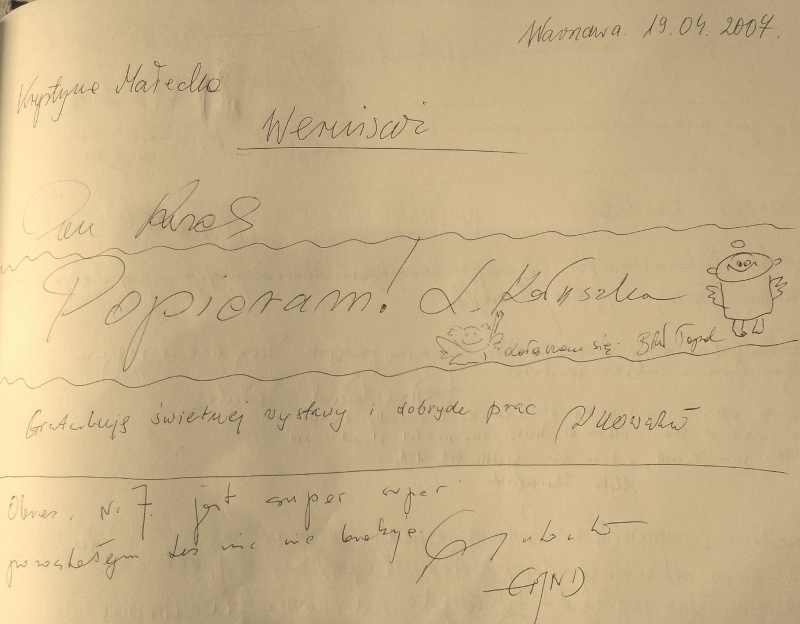 Warszawa. 19.04.2007.
Krystyna Małecka
Wernisaż
Popieram! L. Kałuszka
dołączam się.
Gratuluję świetnej wystawy i dobrych prac
Obraz. Nr 7. jest super super.
pozostałym też nic nie brakuje.